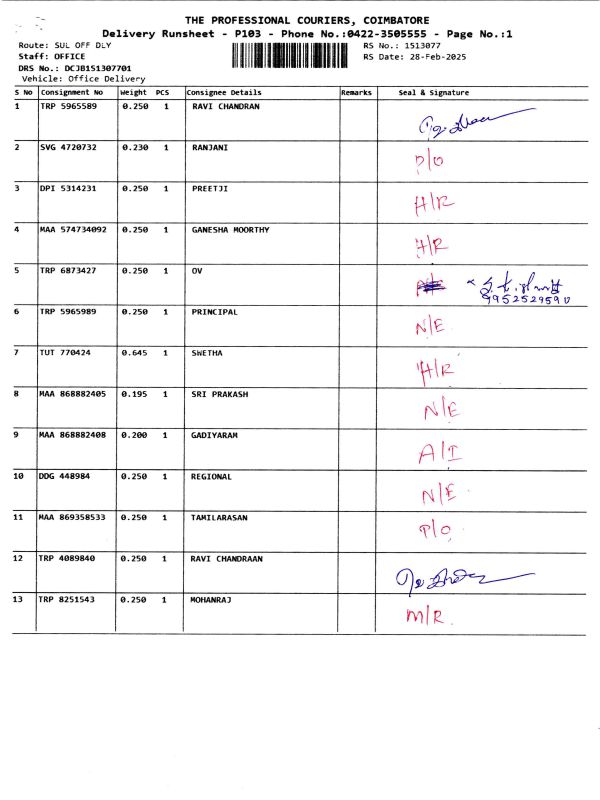 THE PROFESSIONAL COURIERS, COIMBATORE
Delivery Runsheet - P103 - Phone No.:0422-3505555 - Page No.:1
Route: SUL OFF DLY RS No.: 1513077
Staff: OFFICE RS Date: 28-Feb-2025
DRS No.: DCJB1S1307701
Vehicle: Office Delivery
S No Consignment No Weight PCS Consignee Details Remarks Seal & Signature
1 TRP 5965589 0.250 1 RAVI CHANDRAN
2 SVG 4720732 0.230 1 RANJANI D/O
3 DPI 5314231 0.250 1 PREETJI H/R
4 MAA 574734092 0.250 1 GANESHA MOORTHY H/R
5 TRP 6873427 0.250 1 OV
9952529590
6 TRP 5965989 0.250 1 PRINCIPAL N/E
7 TUT 770424 0.645 1 SWETHA H/R
8 MAA 868882405 0.195 1 SRI PRAKASH N/E
9 MAA 868882408 0.200 1 GADIYARAM A/I
10 DDG 448984 0.250 1 REGIONAL N/E
11 MAA 869358533 0.250 1 TAMILARASAN P/O
12 TRP 4089840 0.250 1 RAVI CHANDRAAN
13 TRP 8251543 0.250 1 MOHANRAJ M/R